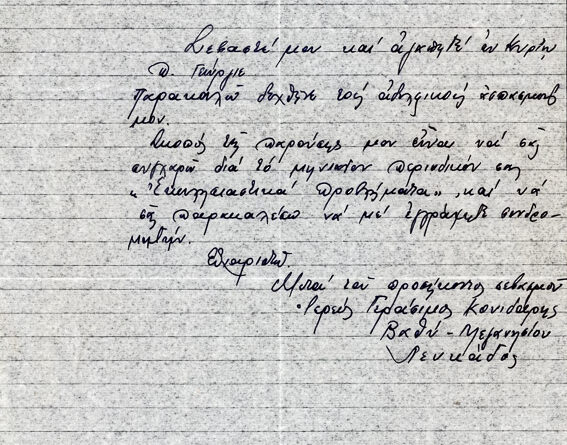 Σεβαστέ μου καί ἀγαπητέ ἐν Κυρίῳ
π. Γεώργιε
Παρακαλῶ δεχθῆτε τούς ἀδελφικούς ἀσπασμούς
μου.
Σκοπός τῆς παρούσης μου εἶναι νά σᾶς
συγχαρῶ διά τό μηνιαῖον περιοδικόν σας
"Ἐκκλησιαστικά Προβλήματα", καί νά
σᾶς παρακαλέσω νά μέ ἐγγράψητε συνδρο-
μητήν.
Εὐχαριστῶ.
Μετά τοῦ προσήκοντος σεβασμοῦ
Ἱερεύς Γεράσιμος Κονιδάρης
Βαθύ - Μεγανησίου
Λευκάδος